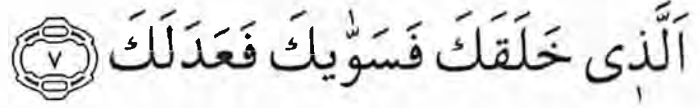 اَلَّذ۪ى خَلَقَكَ فَسَوّٰيكَ فَعَدَلَكَ ﴿٧﴾